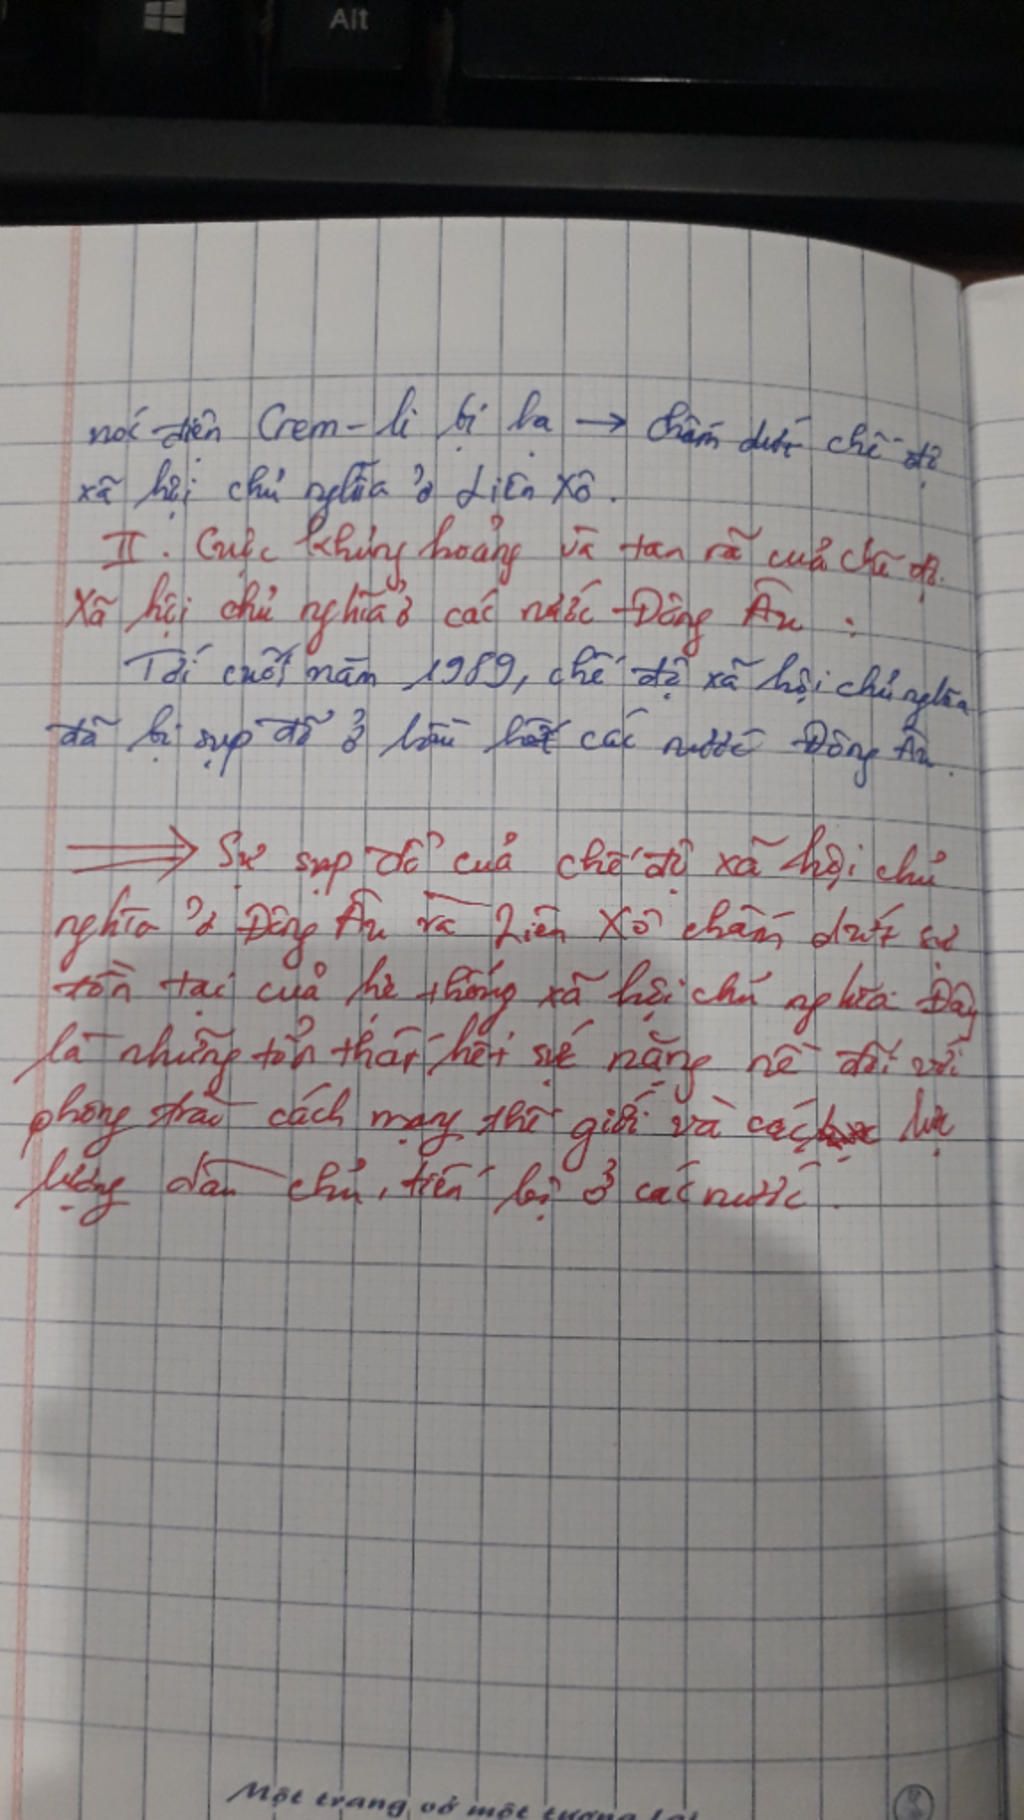 Alt
nóc điện Crem-li bị hạ → chấm dứt chế độ
xã hội chủ nghĩa ở Liên Xô.
II. Cuộc khủng hoảng và tan rã của chế độ
Xã hội chủ nghĩa ở các nước Đông Âu :
Tới cuối năm 1989, chế độ xã hội chủ nghĩa
đã bị sụp đổ ở hầu hết các nước Đông Âu.
⟹ Sự sụp đổ của chế độ xã hội chủ
nghĩa ở Đông Âu và Liên Xô chấm dứt sự
tồn tại của hệ thống xã hội chủ nghĩa. Đây
là những tổn thất hết sức nặng nề đối với
phong trào cách mạng thế giới và các lực
lượng dân chủ, tiến bộ ở các nước.
Một trang vở một tương lai